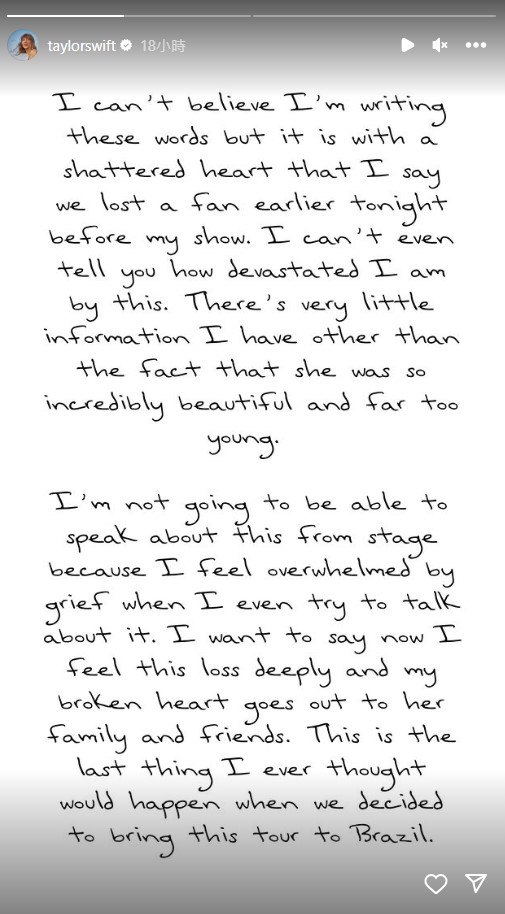 taylorswift 18小時
I can't believe I'm writing
these words but it is with a
shattered heart that I say
we lost a fan earlier tonight
before my show. I can't even
tell you how devastated I am
by this. There's very little
information I have other than
the fact that she was so
incredibly beautiful and far too
young.
I'm not going to be able to
speak about this from stage
because I feel overwhelmed by
grief when I even try to talk
about it. I want to say now I
feel this loss deeply and my
broken heart goes out to her
family and friends. This is the
last thing I ever thought
would happen when we decided
to bring this tour to Brazil.